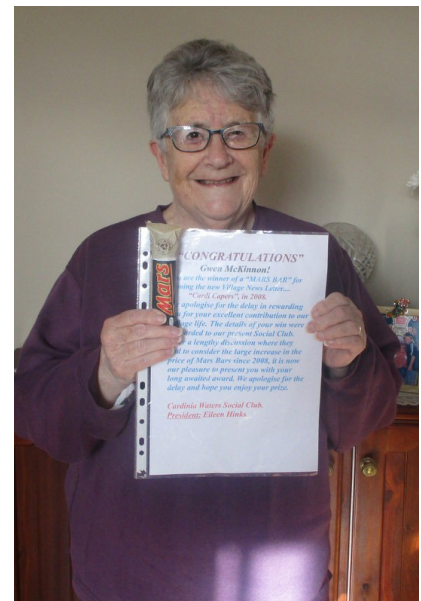 Mars
"CONGRATULATIONS"
Gwen McKinnon!
are the winner of a "MARS BAR" for
the new Village News Letter....
"Cardi Capers", in 2008.
apologise for the delay in rewarding
for your excellent contribution to our
life. The details of your win were
to our present Social Club.
a lengthy discussion where they
to consider the large increase in the
price of Mars Bars since 2008, it is now
our pleasure to present you with your
long awaited award. We apologise for the
delay and hope you enjoy your prize.
Cardinia Waters Social Club.
President: Eileen Hinks